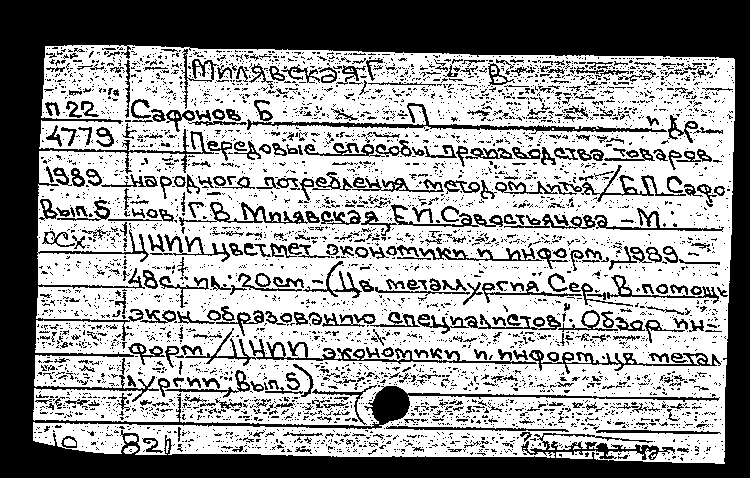 Милявская, Г В
П22 Сафонов, Б П и др.
4779 Передовые способы производства товаров
1989 народного потребления методом литья / Б.П. Сафо
Вып. 5 нов, Г.В. Милявская, Е.П. Савостьянова – М.:
ОСХ ЦНИИ цветмет экономики и информ, 1989.–
48с. ил.; 20см.–(Цв. металлургия Сер. "В помощь
экон образованию специалистов": Обзор ин-
форм. / ЦНИИ экономики и информ. цв метал
лургии; Вып. 5)
10 821